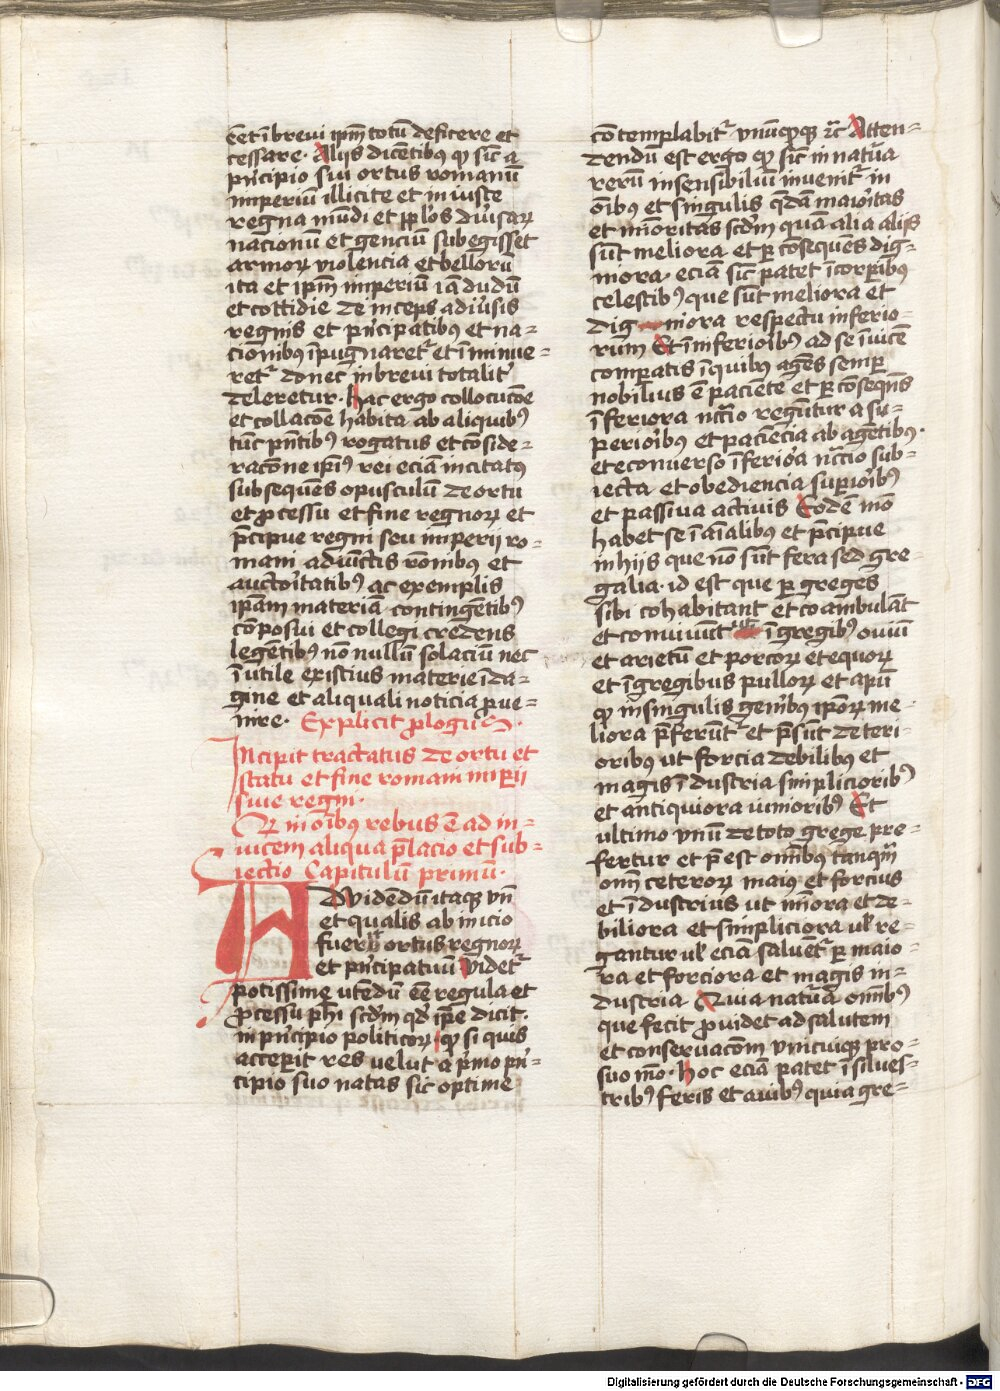 eēt ī brevi ip̄m totū deficere et
cessare. Aliis dicētibus qꝫ sic̄ a
pⁱncipio sui ortus romanū
imperiū illicite et in iuste
regna mūdi et ppl̓os diūsaꝝ
nacionū et genciū subegisset
armoꝝ violencia et belloꝝ
ita et ip̄m imperiū iā dudū
et cottidie de inceps adūsis
regnis et pⁱncipatibꝰ et na=
cionibꝰ īpugnaretᷣ et īminue=
retᷣ donec in brevi totalitᷣ
deleretur. Hac ergo collocucōe
et collacōe habita ab aliquibꝰ
tūc pn̄tibꝰ rogatus et cōside=
racōne ipī̓ꝰ rei eciā incitatꝰ
subsequēs opusculū de ortu
et ꝓcessu et fine regnoꝝ et
p̄cipue regni seu imperii ro=
mani adiūctis rōnibus et
auctoⁱtatibꝰ ac exemplis
ip̄am materiā contingētibꝰ
cōposui et collegi credens
legētibꝰ non nullū solaciū nec
īutile existi̓us materie īda=
gine et aliquali noticia ꝓue=
nire. Explicit ꝓlogus.
Incipit tractatus de ortu et
statu et fine romani imꝑii
siue regni.
Qꝫ in oībus rebus ē ad in=
uicem aliqua p̄lacio et sub=
iectio Capitulū primū.
Ad videndū itaqꝫ vn̄
et qualis ab inicio
fuerit ortus regnoꝝ
et pⁱncipatuū Videtᷣ
potissime vtēdū eē regula et
ꝓcessu ph̄i scd̄m qd̓ ip̄e dicit.
in pⁱncipio politicoꝝ qꝫ si quis
acceꝑit res velut a pⁱmo pⁱn=
cipio suo natas sic optime
cōtemplabitᷣ vnūqꝫqꝫ ꝛc̄ Atten=
dendū est ergo qꝫ sic̄ in natᷓa
rerū insensibiliū inuenitᷣ in
oībus et singulis qᷓdā maioⁱtas
et minoritas scd̄m quā alia aliis
sūt meliora et ꝑ cōsequēs dig=
niora. eciā sic̄ patet ī corꝑibꝰ
celestibꝰ que sūt meliora et
dig niora respectu inferio=
rum Et ī inferioⁱbꝰ ad se īuicē
comꝑatis ī quibꝰ agēs semꝑ
nobilius ē paciente et ꝑ cōseqn̄s
īferiora nccͣio regūtur a su=
perioⁱbus et paciēcia ab agētibus.
et econuerso īferioᷓa nccͣio sub=
iecta et obediencia suꝑioⁱbꝰ
et passiua actiuis Eodē mō
habet se ī aīalibus et pⁱncipue
in hiis que nō sūt fera sed gre=
galia. id est que ꝑ greges
sibi cohabitant et coambulāt
et conuiuūt ī gregibꝰ ouiū
et arietū et porcoꝝ et equoꝝ
et ī gregibus pulloꝝ et apū
qꝫ in singulis gen̓ibꝰ ip̄oꝝ me=
liora p̄ferūtᷣ et p̄sūt deteri=
oribus ut forcia debilibꝰ et
magis īdustria simplicioribꝰ
et antiquiora iunioribꝰ Et
ultimo vnū de toto grege pre=
fertur et p̄est omībus tanqᷓm
om̄ ceteroꝝ maiꝰ et forcius
et īdustrius ut minora et de=
biliora et simpliciora ul̓ re=
gantur ul̓ eciā saluētᷣ ꝑ maio=
ra et forciora et magis in=
dustria Quia natᷓa omībꝰ
que fecit ꝓuidet ad salutem
et conseruacōm vnicuiqꝫ pro=
suo mō. Hoc eciā patet ī siluես=
tribꝰ feris et auibꝰ quia gre=
Digitalisierung gefördert durch die Deutsche Forschungsgemeinschaft - DFG